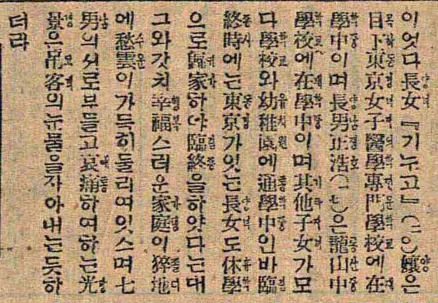 이엇다長女『기누고』( )孃은
目下東京女子醫學專門學校에在
學中이며長男正浩( )은龍山中
學校에在學中이며其他子女가모
다學校와幼稚園에通學中인바臨
終時에는東京가잇는長女도休學
으로歸家하야臨終을하얏다는대
그와갓치幸福스러운家庭이猝地
에愁雲이가득히둘리여잇스며七
男의서로부들고哀痛하여하는光
景은吊客의눈물을자아내는듯하
더라